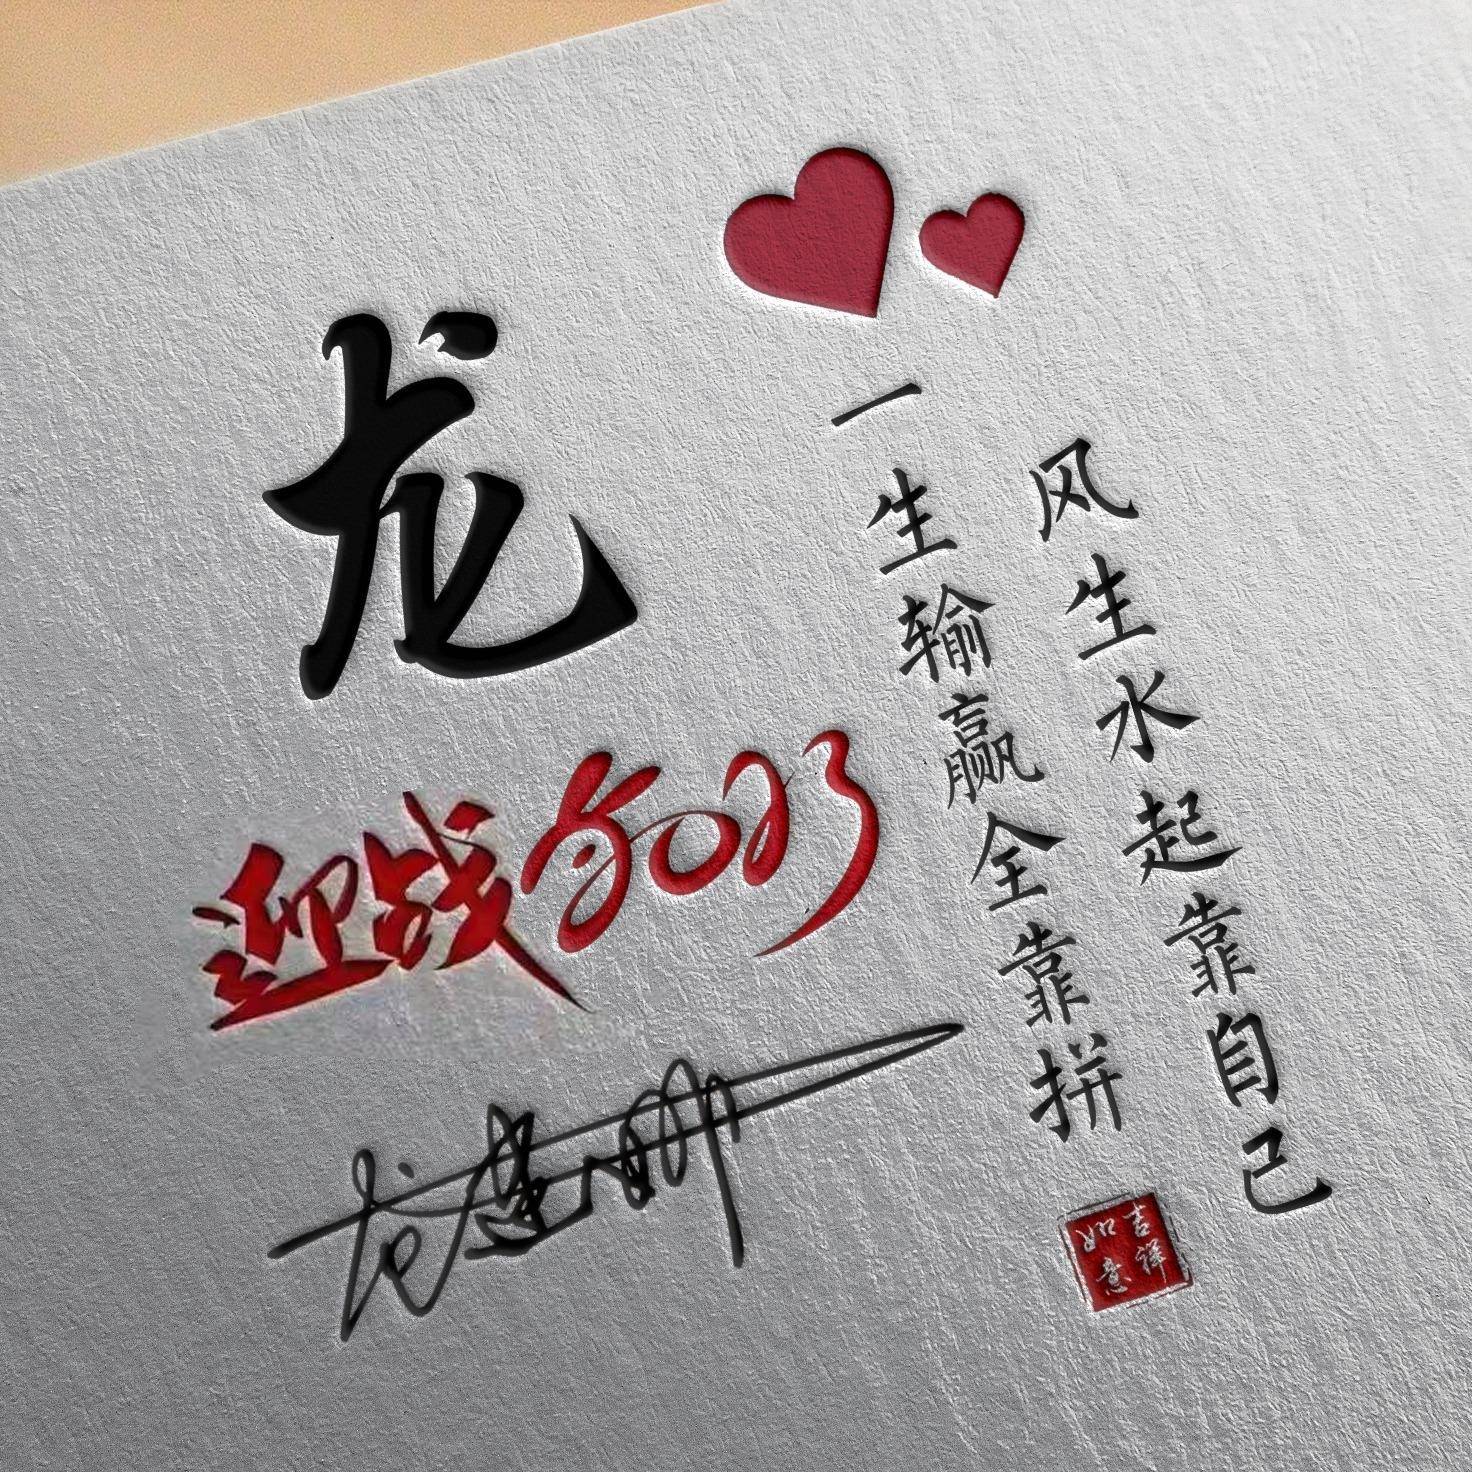 龙
迎战2023
风生水起靠自己
一生输赢全靠拼
吉祥
如意